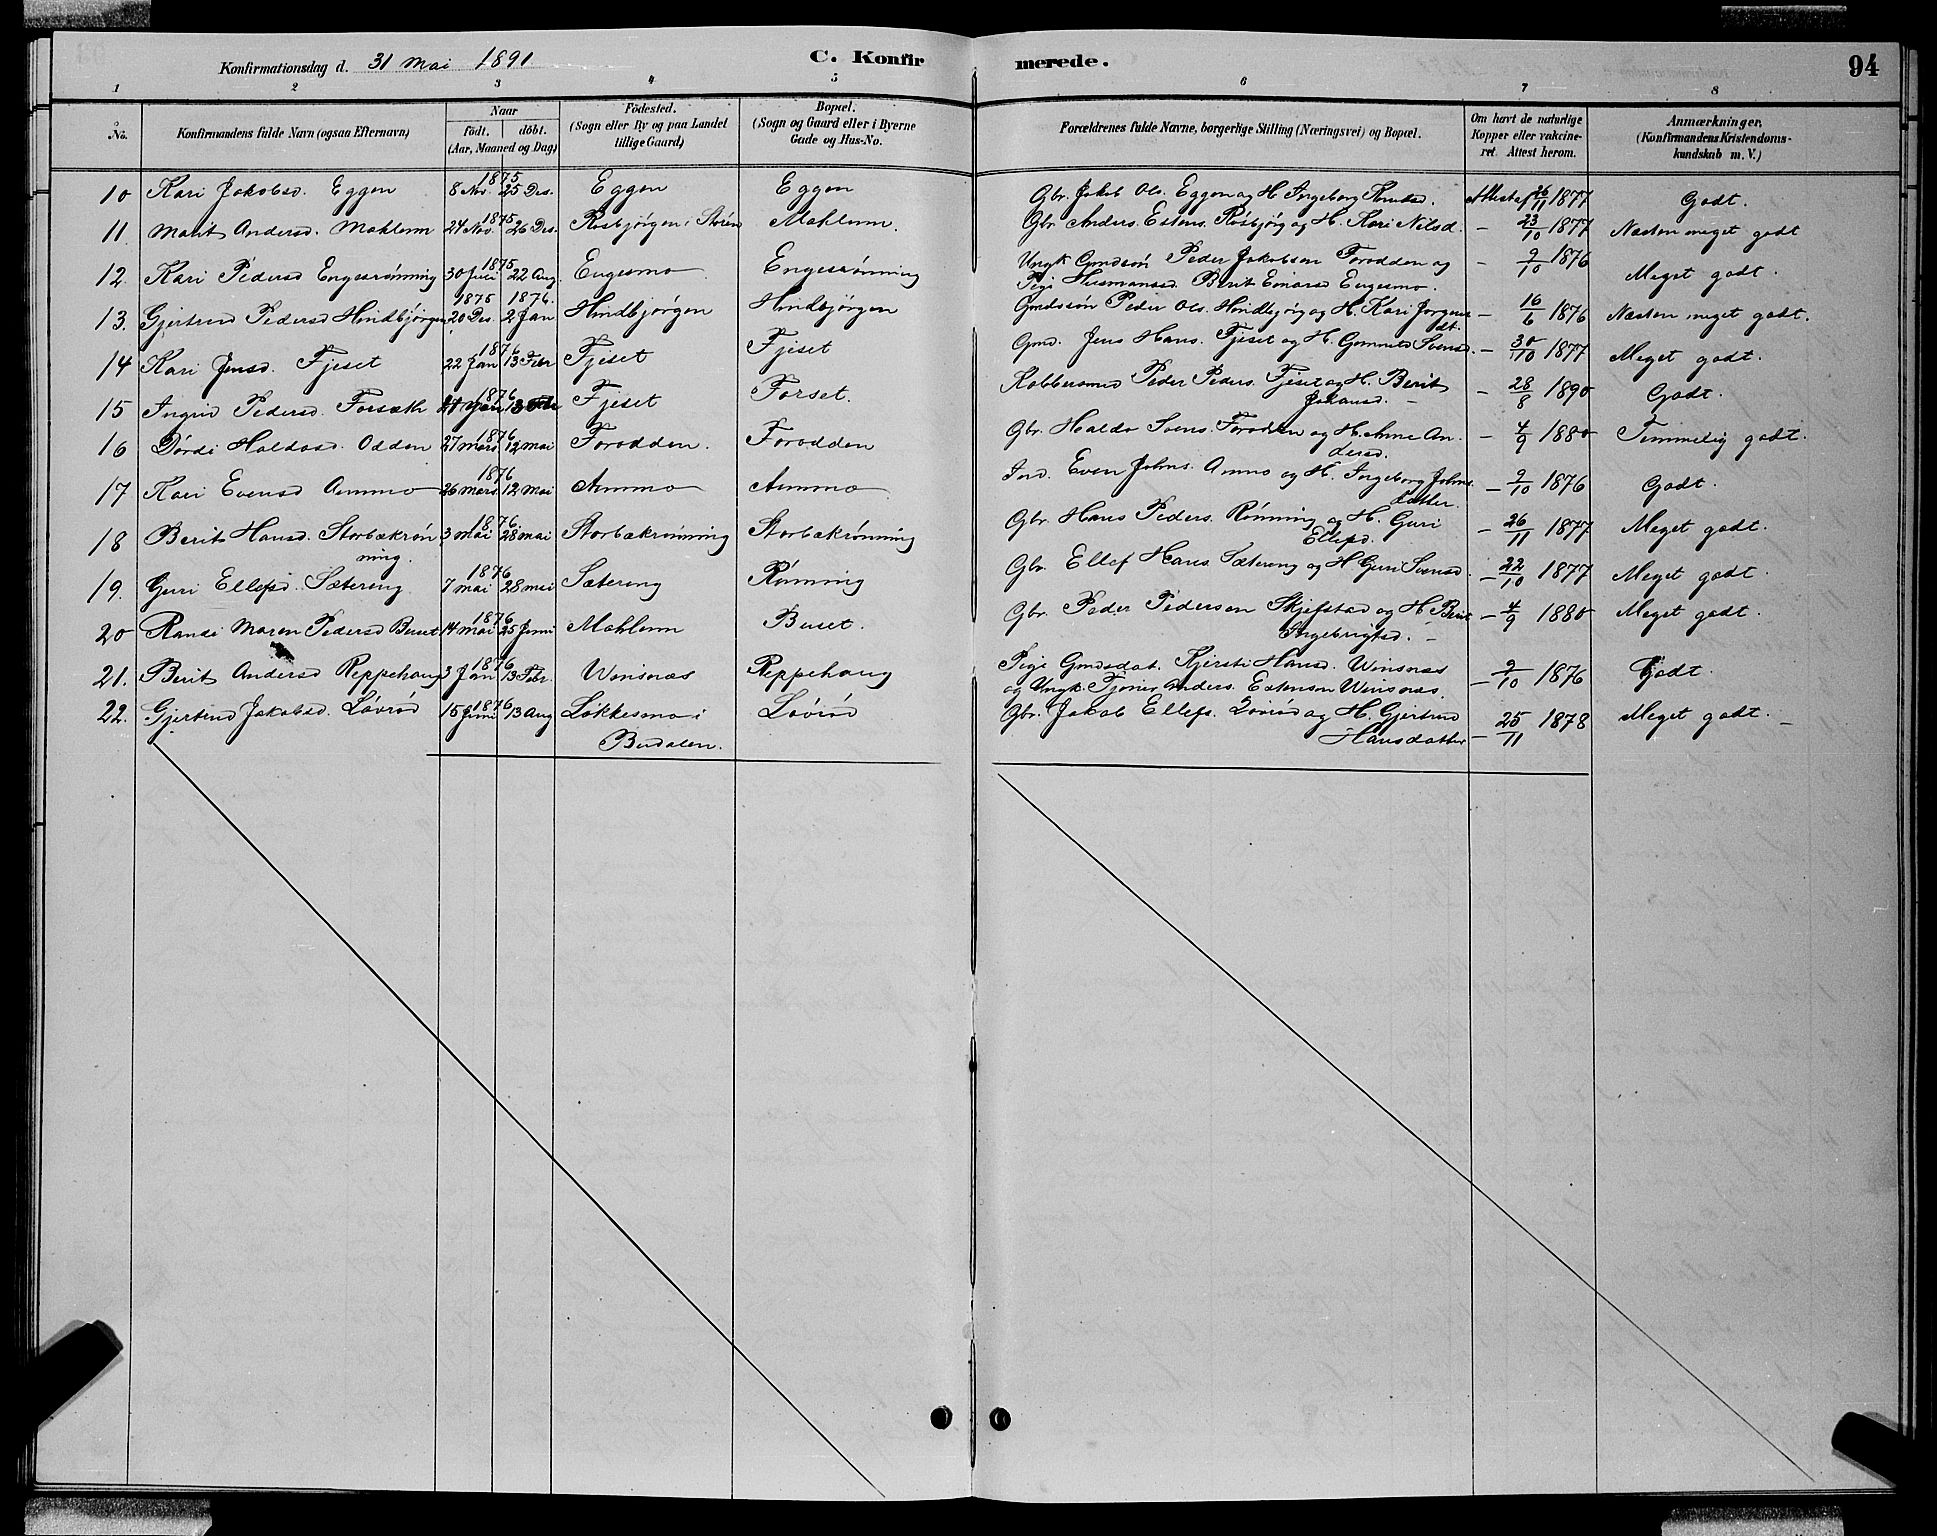 Konfirmationsdag d. 31 Mai 1891. C. Konfirmerede. 94
1 2 3 4 5 6 7 8
No. Konfirmandens fulde Navn (ogsaa Efternavn) Naar født. døbt. (Aar, Maaned og Dag) Fødested. (Sogn eller By og paa Landet tillige Gaard) Bopæl. (Sogn og Gaard eller i Byerne Gade og Hus-No. Forældrenes fulde Navne, borgerlige Stilling (Næringsvei) og Bopæl. Om havt de naturlige Kopper eller vakcineret. Attest herom. Anmærkninger. (Konfirmandens Kristendomskundskab m. V.)
10 Kari Jakobsd. Eggen 1875 8 Nov. 25 Des. Eggen Eggen Gbr. Jakob Ols. Eggen og H. Ingeborg Knudsd. Attest af 26/11 1877 Godt.
11. Marit Andersd. Mohlenn 1875 24 Nov. 26 Des. Rosbjørgen i Støren Mohlenn. Gbr. Anders Estens. Rosbjørg og H. Kari Nilsd. - 23/10 1877 Næsten meget godt
12. Kari Pedersd Engesrønning 1875 30 Juli 22 Aug. Engesmo Engesrønning Ungk. Gmdssøn Peder Jakobsen Forodden og
Pige Husmandsd. Berit Einarsd Engesmo. - 9/10 1876 Meget godt.
13. Gjertrud Pedersd Hindbjørgen 1875 1876. 20 Des. 2 Jan Hindbjørgen Hindbjørgen Gmdssøn Peder Ols. Hindbjørg og H. Kari Jørgens
dt. - 16/6 1876 Næsten meget godt.
14 Kari Jensd. Fjeset 1876 22 Jan 13 Febr Fjeset Fjeset Gmd. Jens Hans. Fjeset og H. Gunnild Svensd. - 30/10 1877 Meget godt.
15 Ingrid Pedersd. Forsæth 1876 Fjeset Forset. Kobbersmed Peder Peders. Fjeset og H. Berit
Johansd. - - 28/8 1890 Godt.
16 Dordi Haldosd. Odden 1876 27 Mars 12 Mai Forodden. Forodden Gbr. Haldo Svens. Forodden og H. Ane An-
dersd. - 4/9 1880 Temmelig godt.
17 Kari Evensd Ammo 1876 26 Mars 12 Mai Ammo Ammo. Ind. Even Johns. Ammo og H. Ingeborg Johns
datter. - 9/10 1876 Godt.
18 Berit Hansd. Storbækrøn
ning. 1876 3 Mai 28 Mai Storbækrønning Storbækrønning Gbr. Hans Peders. Rønning og H. Guri
Ellefsd. - 26/11 1877 Meget godt.
19. Guri Ellefsd. Sætereng 1876 7 Mai 28 Mai Sætereng Rønning Gbr. Ellef Hans. Sætereng og H. Guri Svensd. - 22/10 1877 Meget godt.
20 Randi Maren Pedersd Buset 1876 14 Mai 25 Juni Mohlenn Buset. Gbr. Peder Pedersen Skjefstad og H. Berit
Ingebrigtsd. - - 4/9 1880 Meget godt.
21. Berit Andersd Reppehaug 1876 3 Jan 13 Febr. Winsnæs Reppehaug Pige Gmdsdat. Kjersti Hansd. Winsnæs
og Ungk. Tjener Anders Estensen Winsnæs. - 9/10 1876 Godt.
22. Gjertrud Jakobsd. Løvrød 1876 15 Juni 13 Aug Løkkesmo i
Budalen. Løvrød Gbr. Jakob Ellefs. Løvrød og H. Gjertrud
Hansdatter - 25/11 1878 Meget godt. -